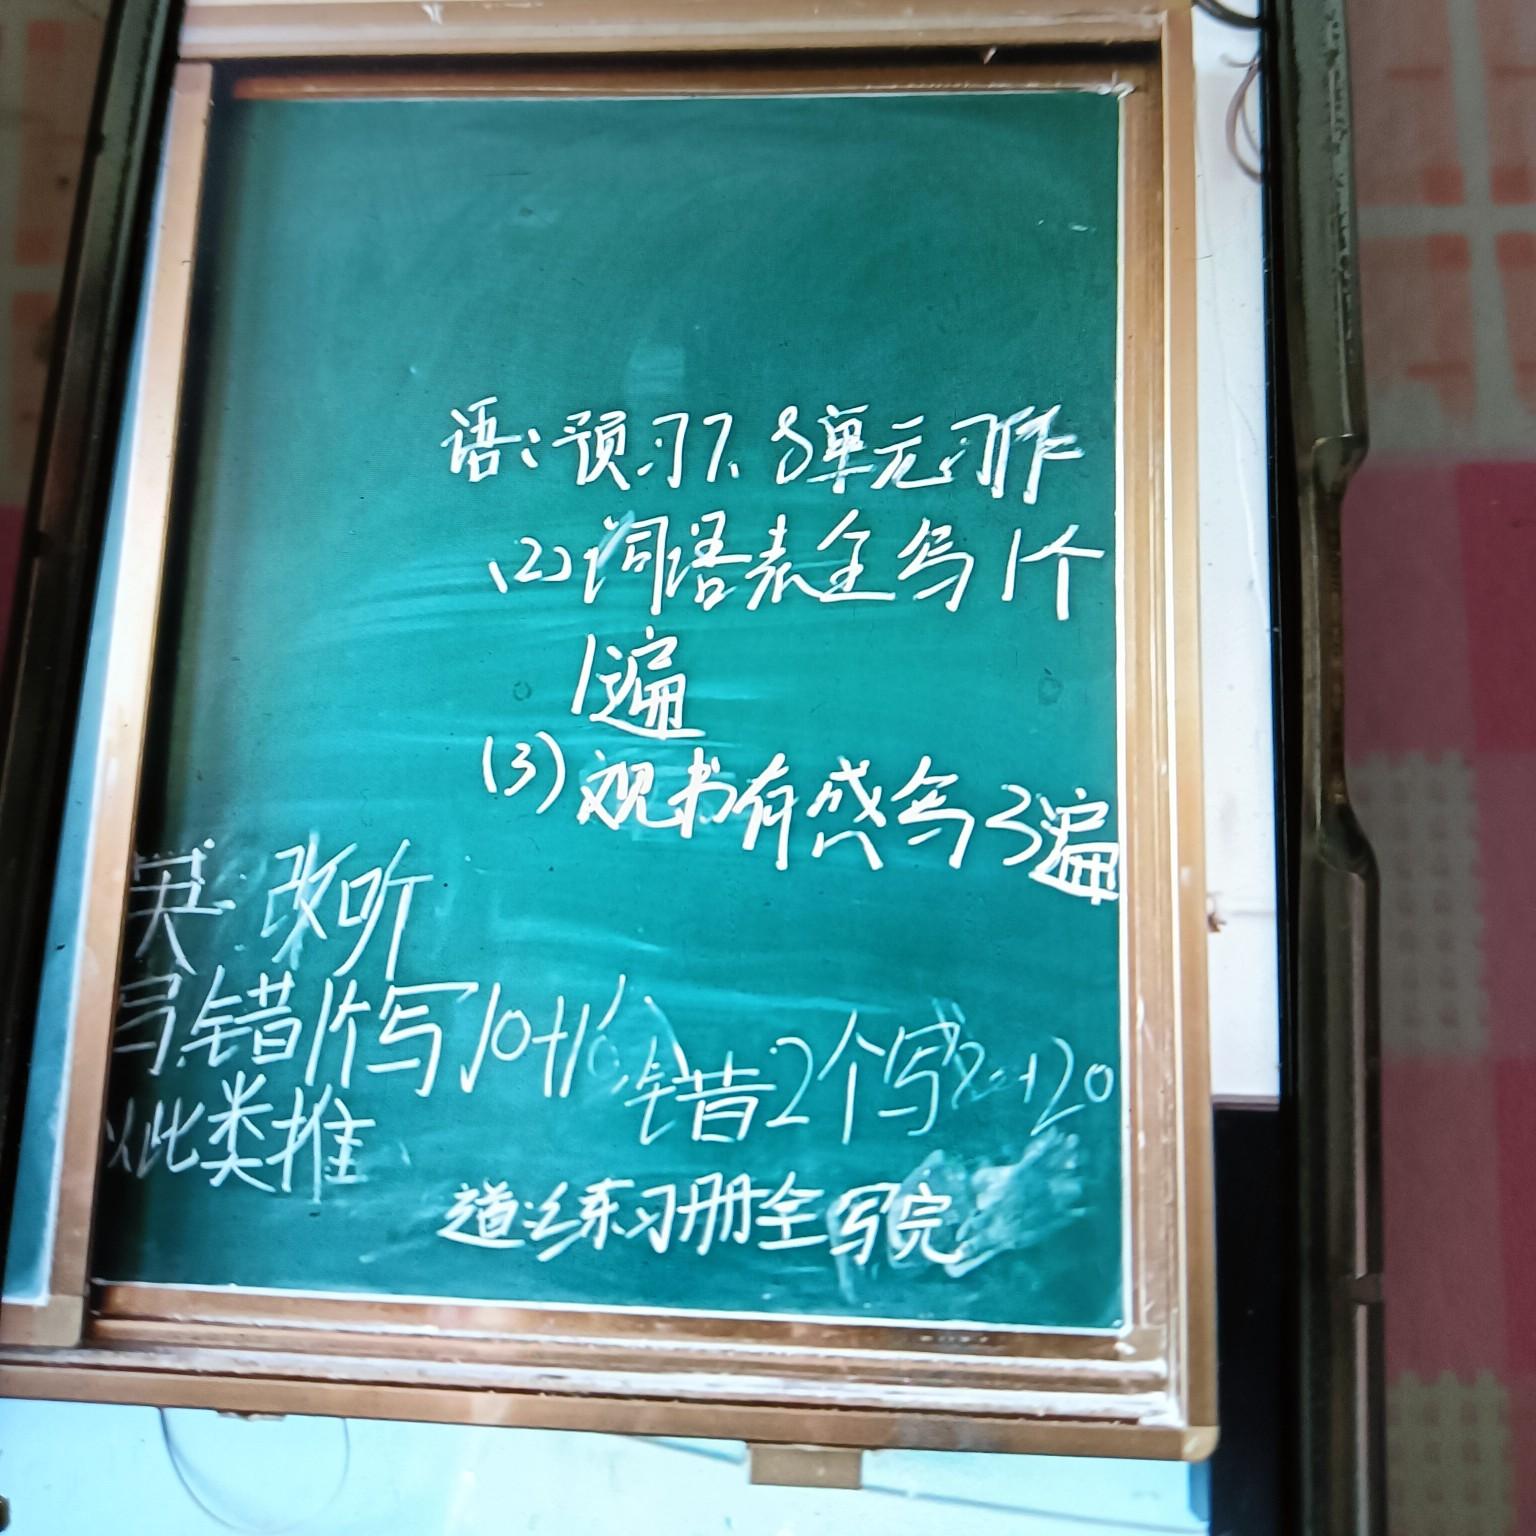 语:预习7、8单元习作
(2)词语表全写1个
1遍
(3)观书有感写3遍
英:改听
写,错1个写10+1
错2个写 +20
以此类推
道:练习册全写完